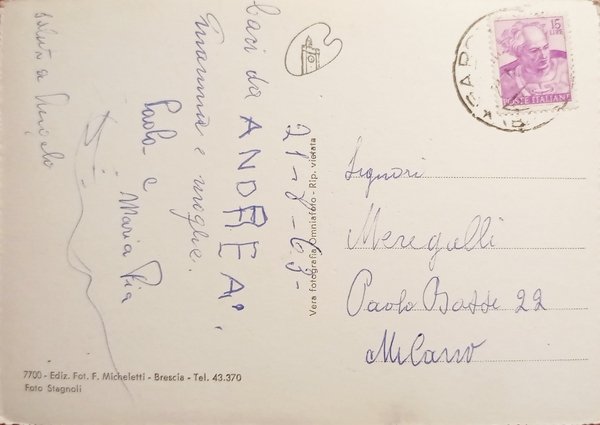 21-8-63-
baci da ANDREA,
Gianna e moglie.
Paolo e
Maria Pia
saluti a
Signori
Meregalli
Paolo Bassi 22
Milano
15
LIRE
POSTE ITALIANE
Vera fotografia Omniafoto - Rip. vietata
7700 - Ediz. Fot. F. Micheletti - Brescia - Tel. 43.370
Foto Stagnoli